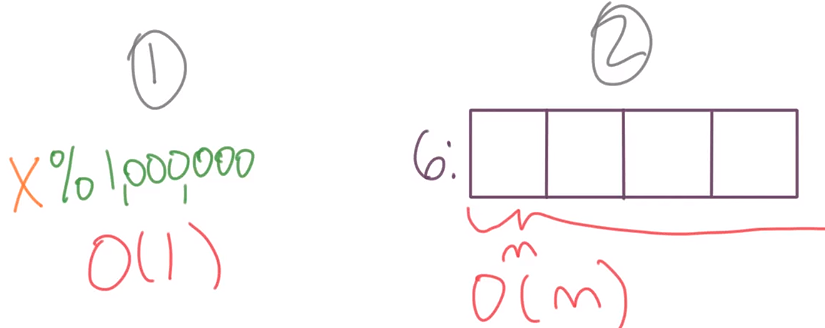 1
X % 1,000,000
O(1)
2
6:
m
O(m)